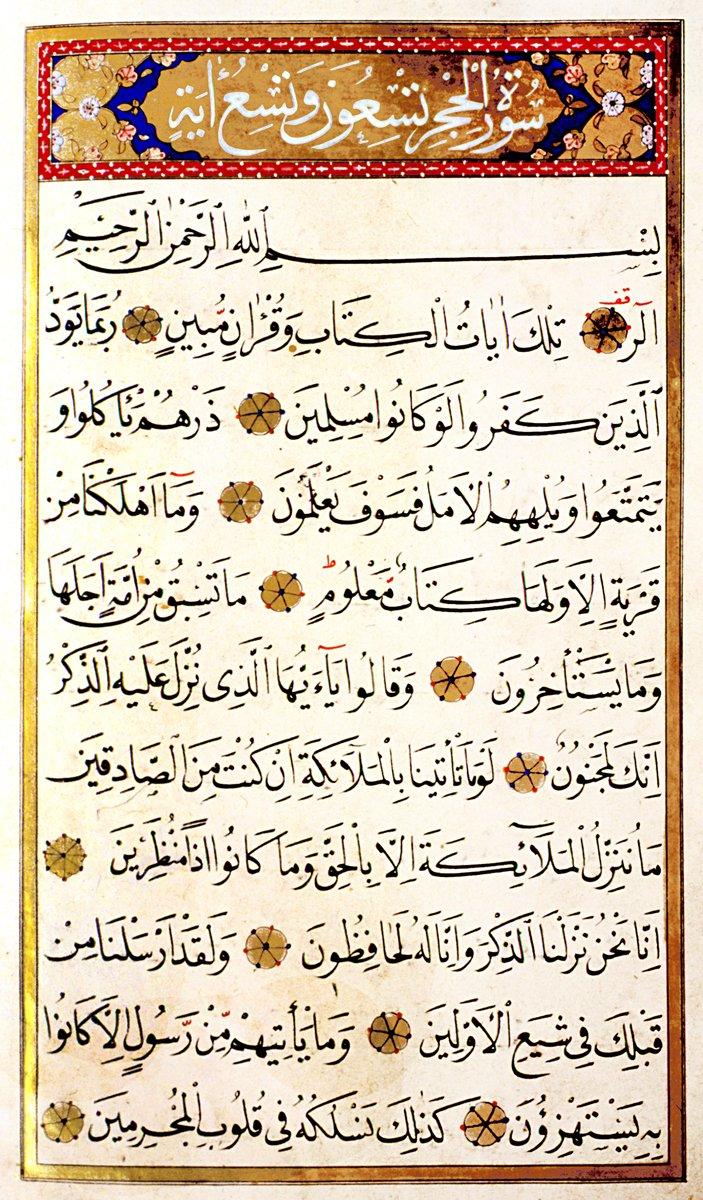 سُورَةُ الْحِجْرِ تِسْعُونَ وَتِسْعُ اٰيَةٍ
بِسْمِ اللّٰهِ الرَّحْمٰنِ الرَّحِيْمِ
الٓرٰ قف تِلْكَ اٰيَاتُ الْكِتَابِ وَقُرْاٰنٍ مُبِينٍ رُبَمَا يَوَدُّ
الَّذِينَ كَفَرُوا لَوْ كَانُوا مُسْلِمِينَ ذَرْهُمْ يَأْكُلُوا وَ
يَتَمَتَّعُوا وَيُلْهِهِمُ الْاَمَلُ فَسَوْفَ يَعْلَمُونَ وَمَٓا اَهْلَكْنَا مِنْ
قَرْيَةٍ اِلَّا وَلَهَا كِتَابٌ مَعْلُومٌ ط مَا تَسْبِقُ مِنْ اُمَّةٍ اَجَلَهَا
وَمَا يَسْتَأْخِرُونَ وَقَالُوا يَٓاءَيُّهَا الَّذِى نُزِّلَ عَلَيْهِ الذِّكْرُ
اِنَّكَ لَمَجْنُونٌ لَوْمَا تَأْتِينَا بِالْمَلَٓائِكَةِ اِنْ كُنْتَ مِنَ الصَّادِقِينَ
مَا نُنَزِّلُ الْمَلَٓائِكَةَ اِلَّا بِالْحَقِّ وَمَا كَانُوا اِذًا مُنْظَرِينَ
اِنَّا نَحْنُ نَزَّلْنَا الذِّكْرَ وَاِنَّا لَهُ لَحَافِظُونَ وَلَقَدْ اَرْسَلْنَا مِنْ
قَبْلِكَ فِى شِيَعِ الْاَوَّلِينَ وَمَا يَأْتِيهِمْ مِنْ رَسُولٍ اِلَّا كَانُوا
بِهِ يَسْتَهْزِؤُنَ كَذٰلِكَ نَسْلُكُهُ فِى قُلُوبِ الْمُجْرِمِينَ